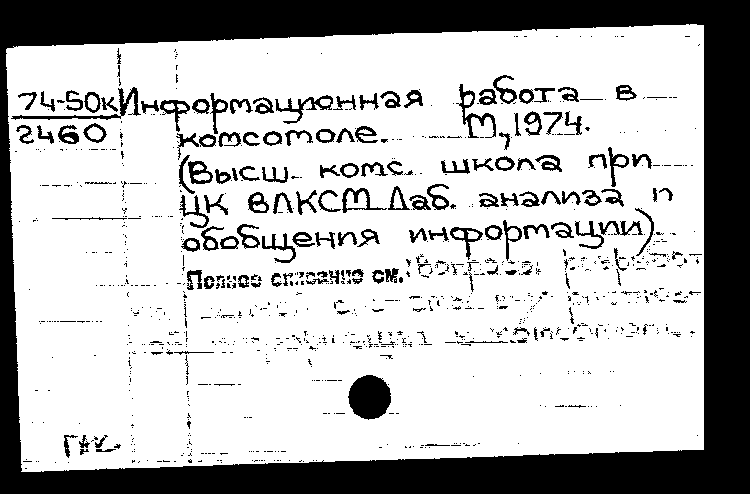 74-50к Информационная работа в
2460 комсомоле. М., 1974.
(Высш. комс. школа при
ЦК ВЛКСМ Лаб. анализа и
обобщения информации)
Полное описание см.: Вопросы разработ
системы
информации в комсомоле.
ГАК